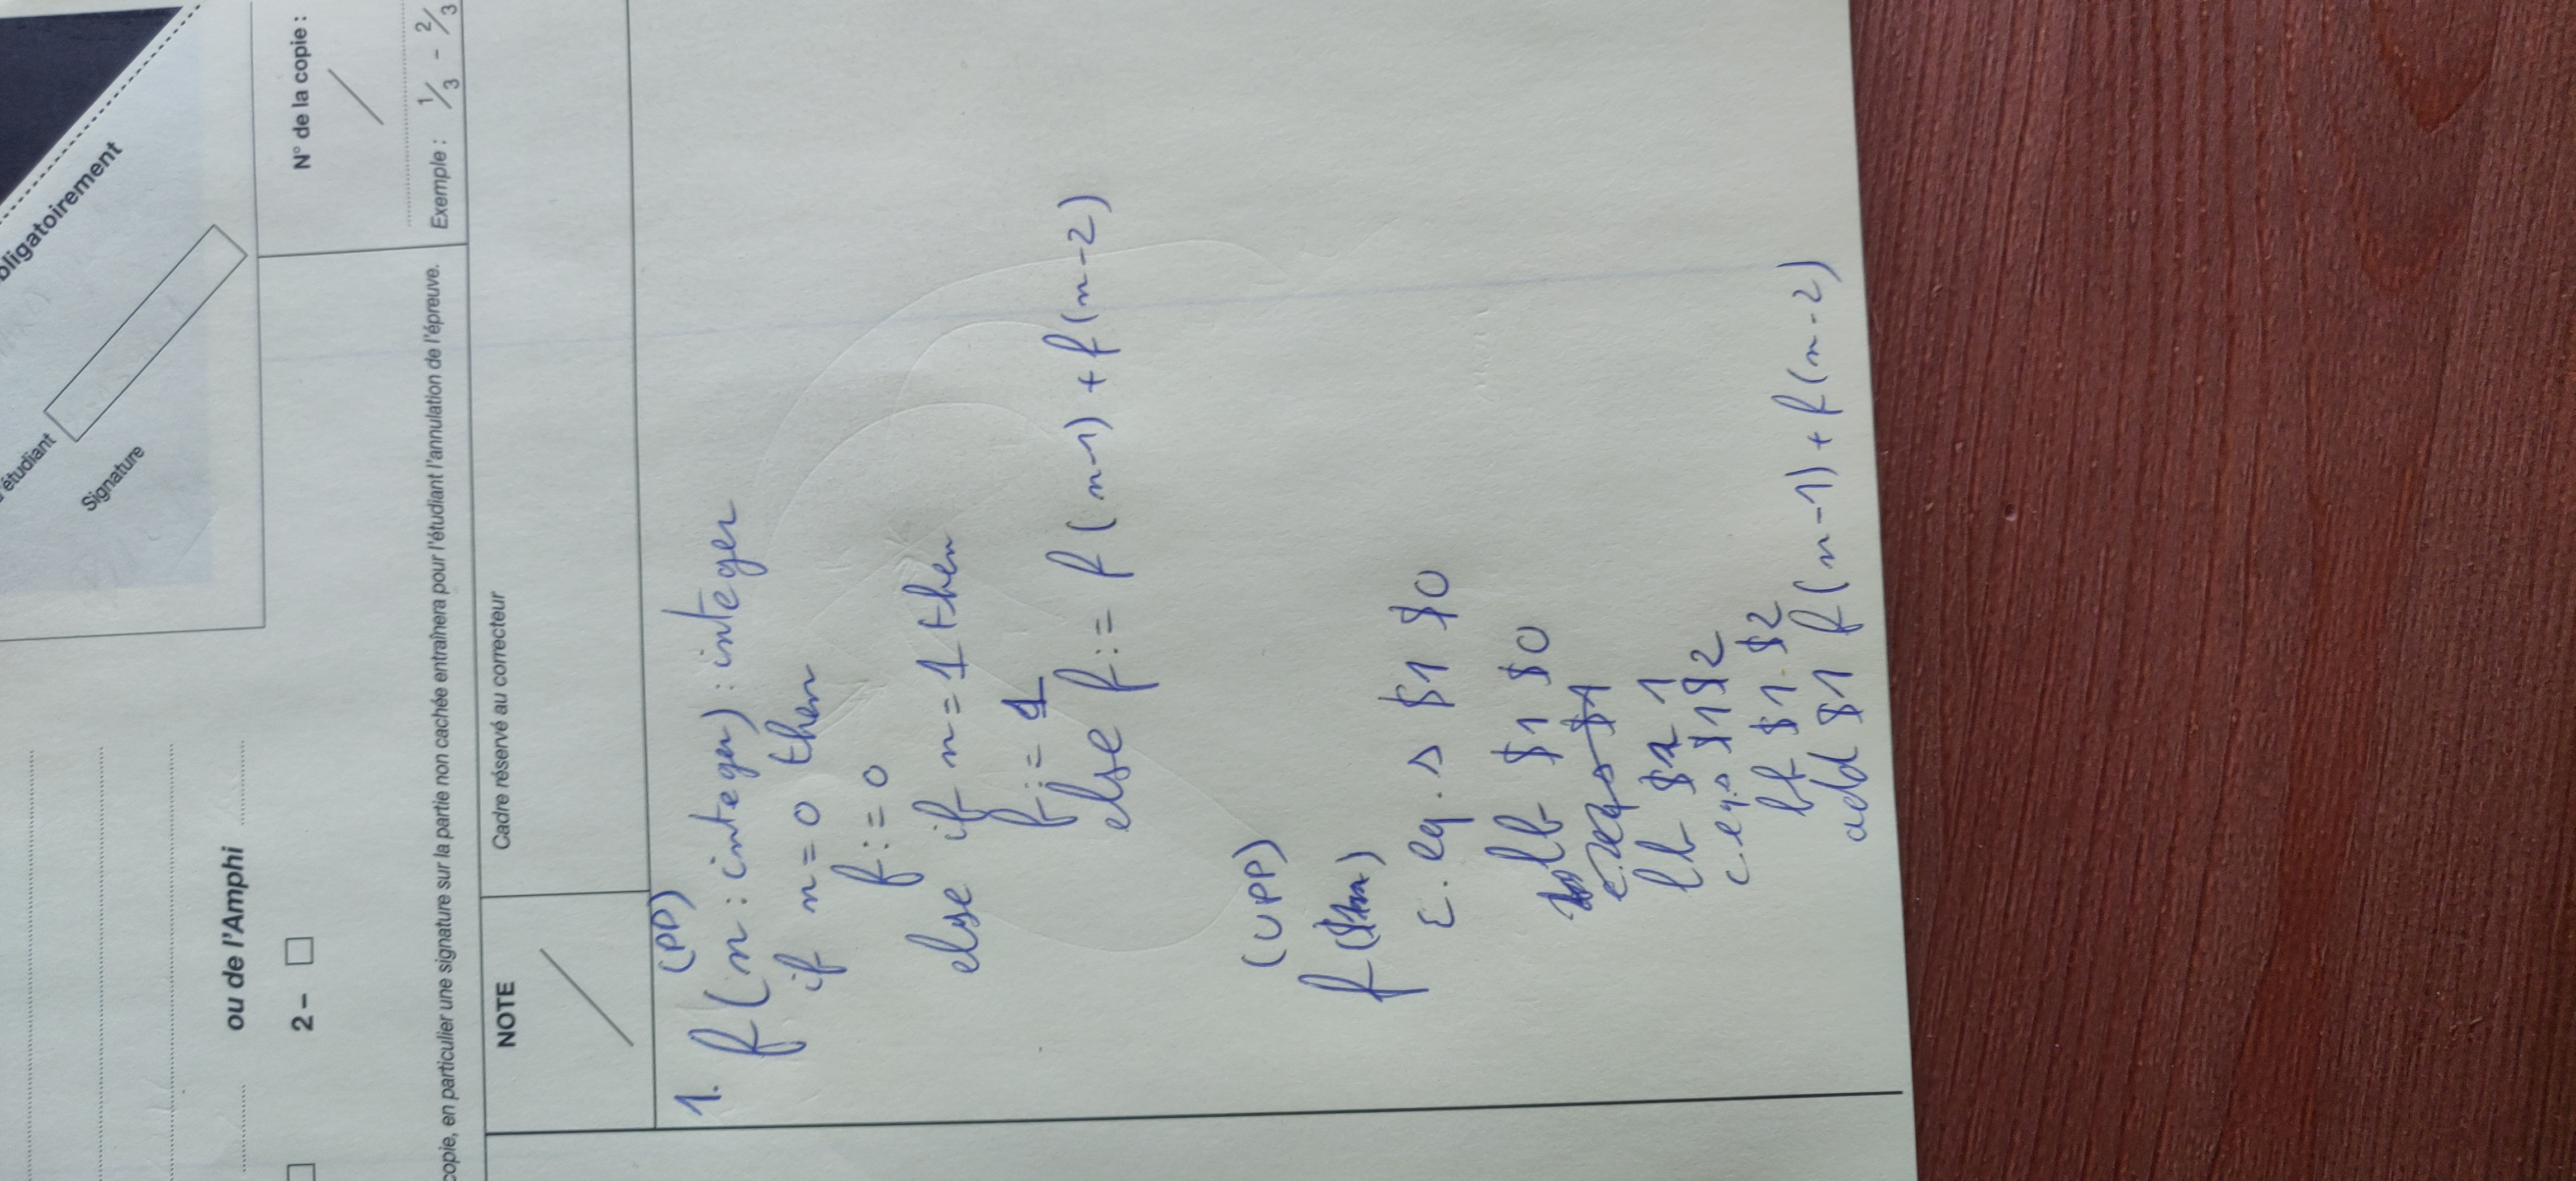 l'étudiant
Signature
obligatoirement
ou de l'Amphi
2 –
N° de la copie :
copie, en particulier une signature sur la partie non cachée entraînera pour l'étudiant l'annulation de l'épreuve.
Exemple : 1/3 - 2/3
NOTE
Cadre réservé au correcteur
(PP)
1. f(n : integer) : integer
if n = 0 then
f := 0
else if n = 1 then
f := 1
else f := f(n-1) + f(n-2)
(UPP)
f( )
c.eq.s $1 $0
lb $1 $0
c.eq.s $1
lb 1
c.eq.s $1 $2
lb $1 $2
add $1 f(n-1) + f(n-2)